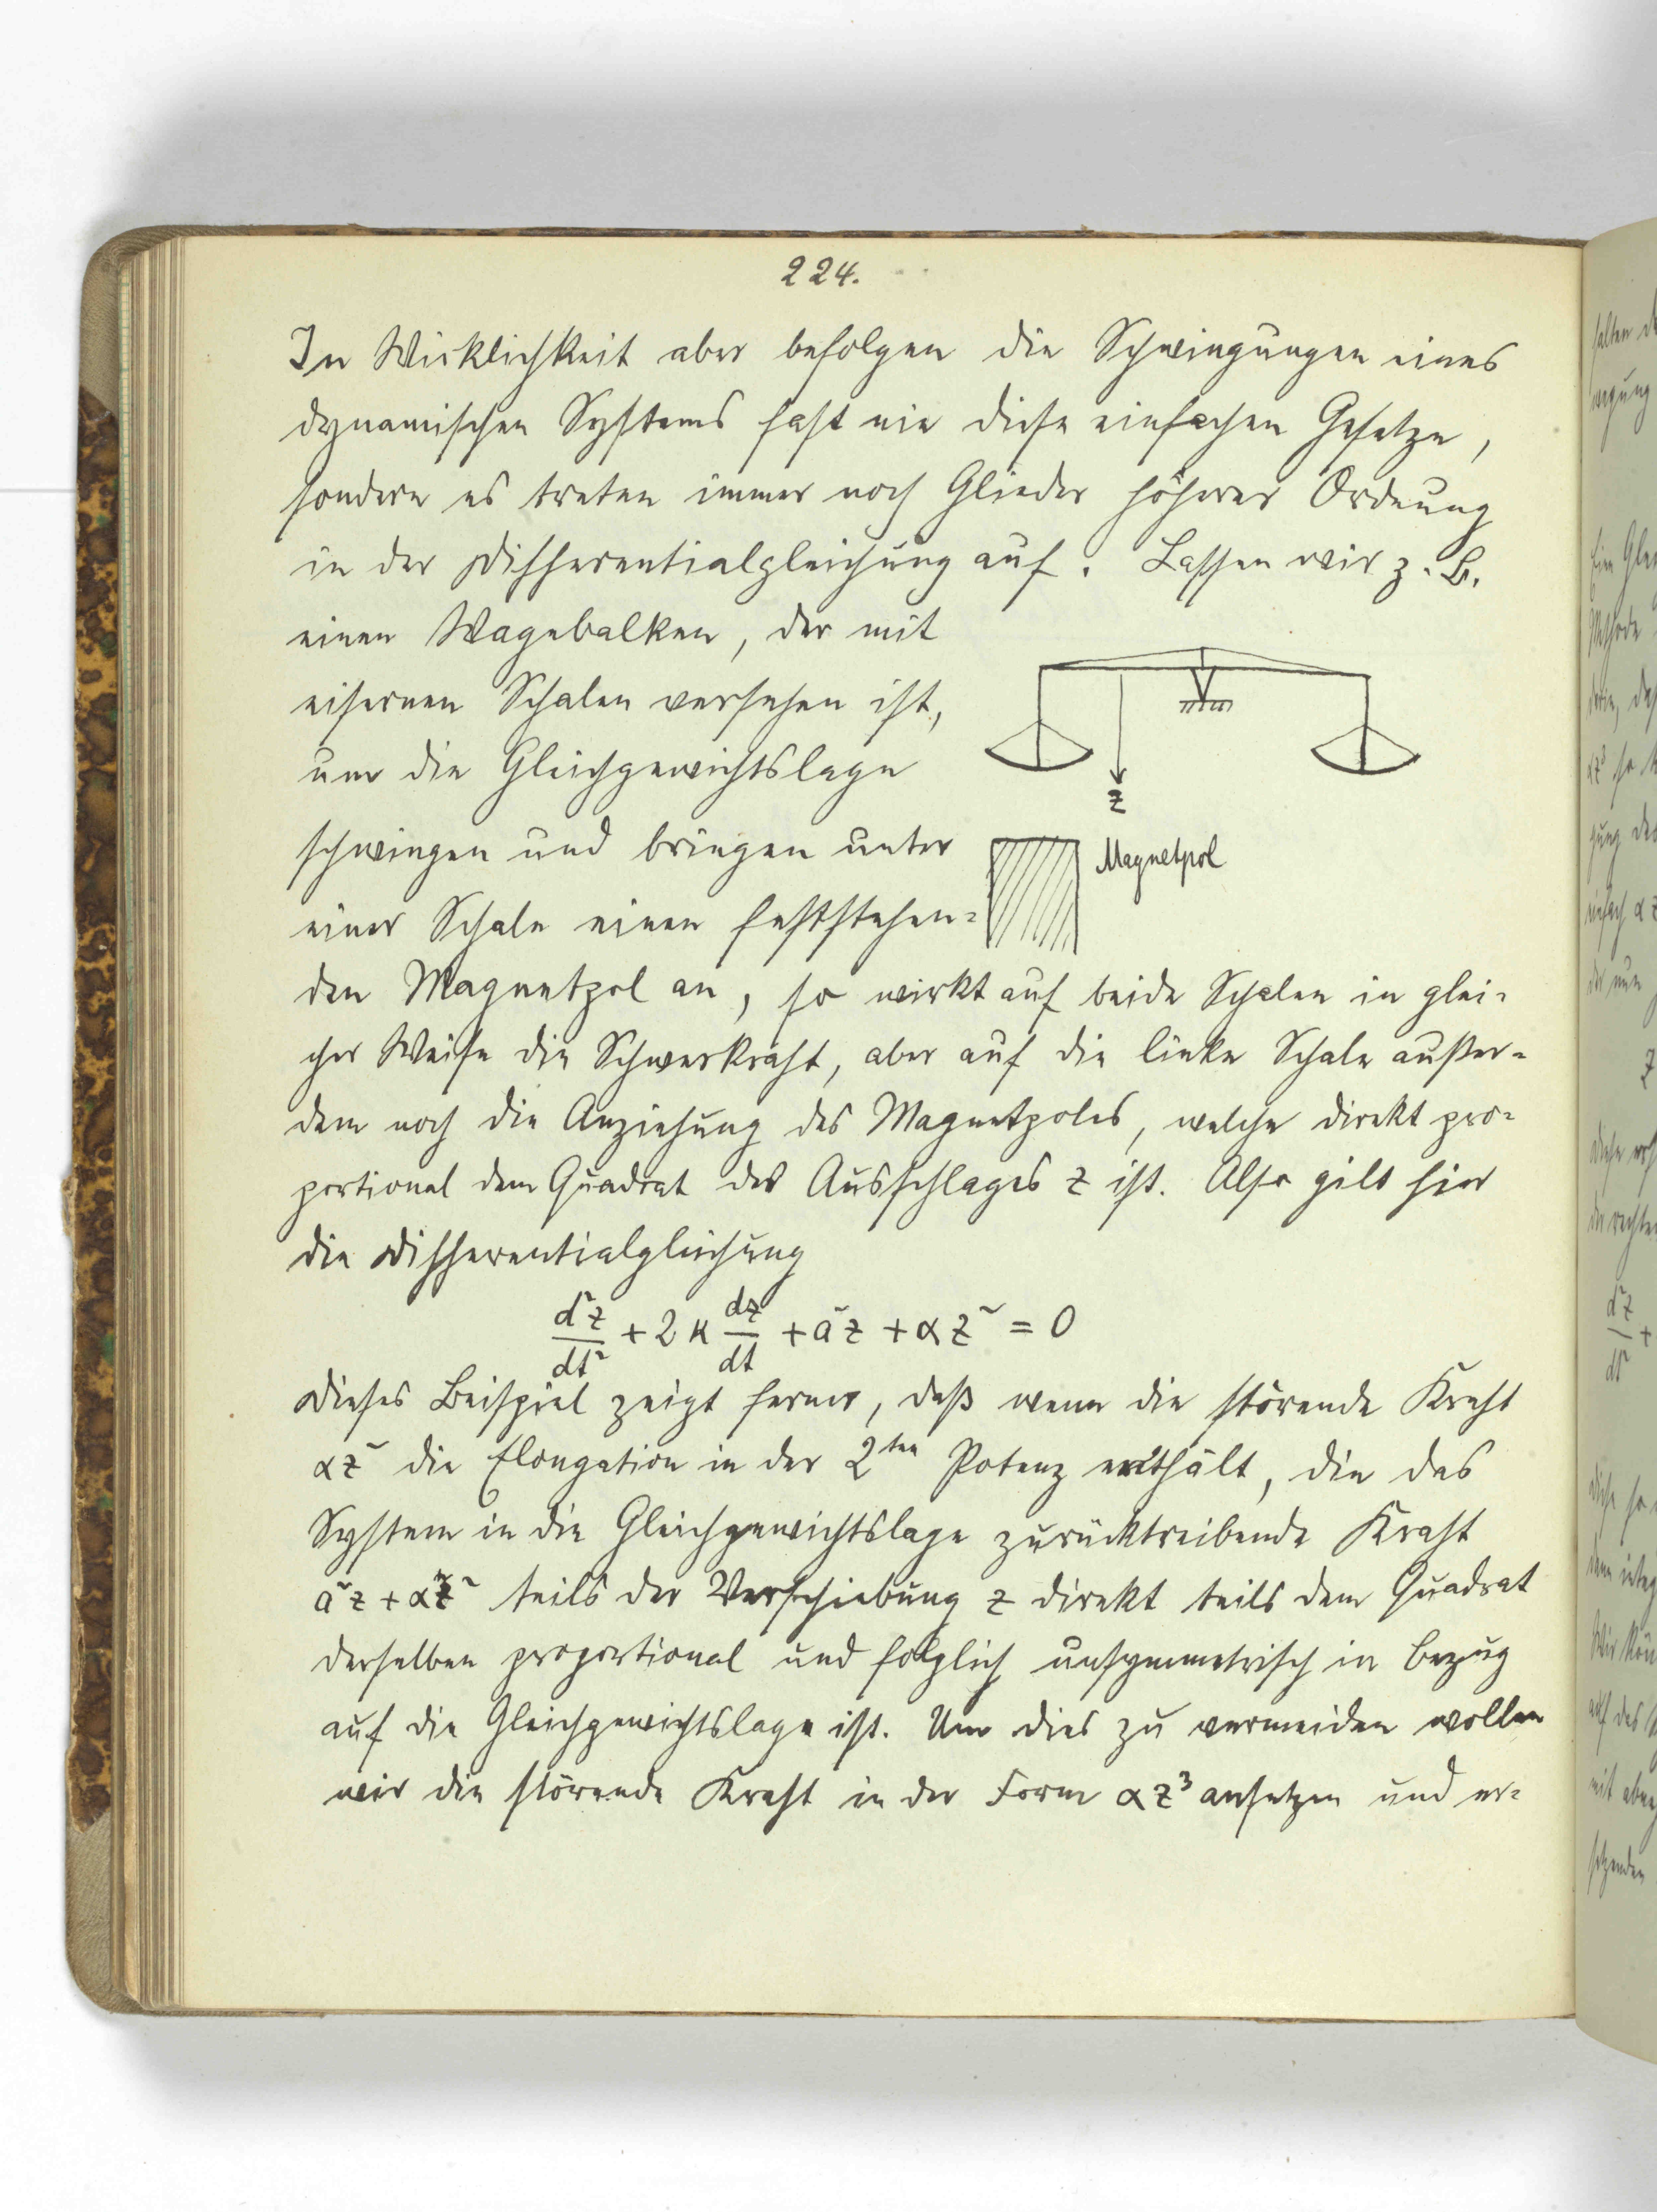 224.
In Wirklichkeit aber befolgen die Schwingungen eines
dynamischen Systems fast nie diese einfachen Gesetze,
sondern es treten immer noch Glieder höherer Ordnung
in der Differentialgleichung auf. Lassen wir z. B.
einen Wagebalken, der mit
eisernen Schalen versehen ist,
um die Gleichgewichtslage
schwingen und bringen unter
einer Schale einen feststehen-
z
Magnetpol
den Magnetpol an, so wirkt auf beide Schalen in glei-
cher Weise die Schwerkraft, aber auf die linke Schale außer-
dem noch die Anziehung des Magnetpoles, welche direkt pro-
portional dem Quadrat des Ausschlages z ist. Also gilt hier
die Differentialgleichung
d²z/dt² + 2κ dz/dt + a²z + αz² = 0
Dieses Beispiel zeigt ferner, daß wenn die störende Kraft
αz² die Elongation in der 2ten Potenz enthält, die das
System in die Gleichgewichtslage zurücktreibende Kraft
a²z + αz² teils der Verschiebung z direkt teils dem Quadrat
derselben proportional und folglich unsymmetrisch in bezug
auf die Gleichgewichtslage ist. Um dies zu vermeiden wollen
wir die störende Kraft in der Form αz³ ansetzen und er-